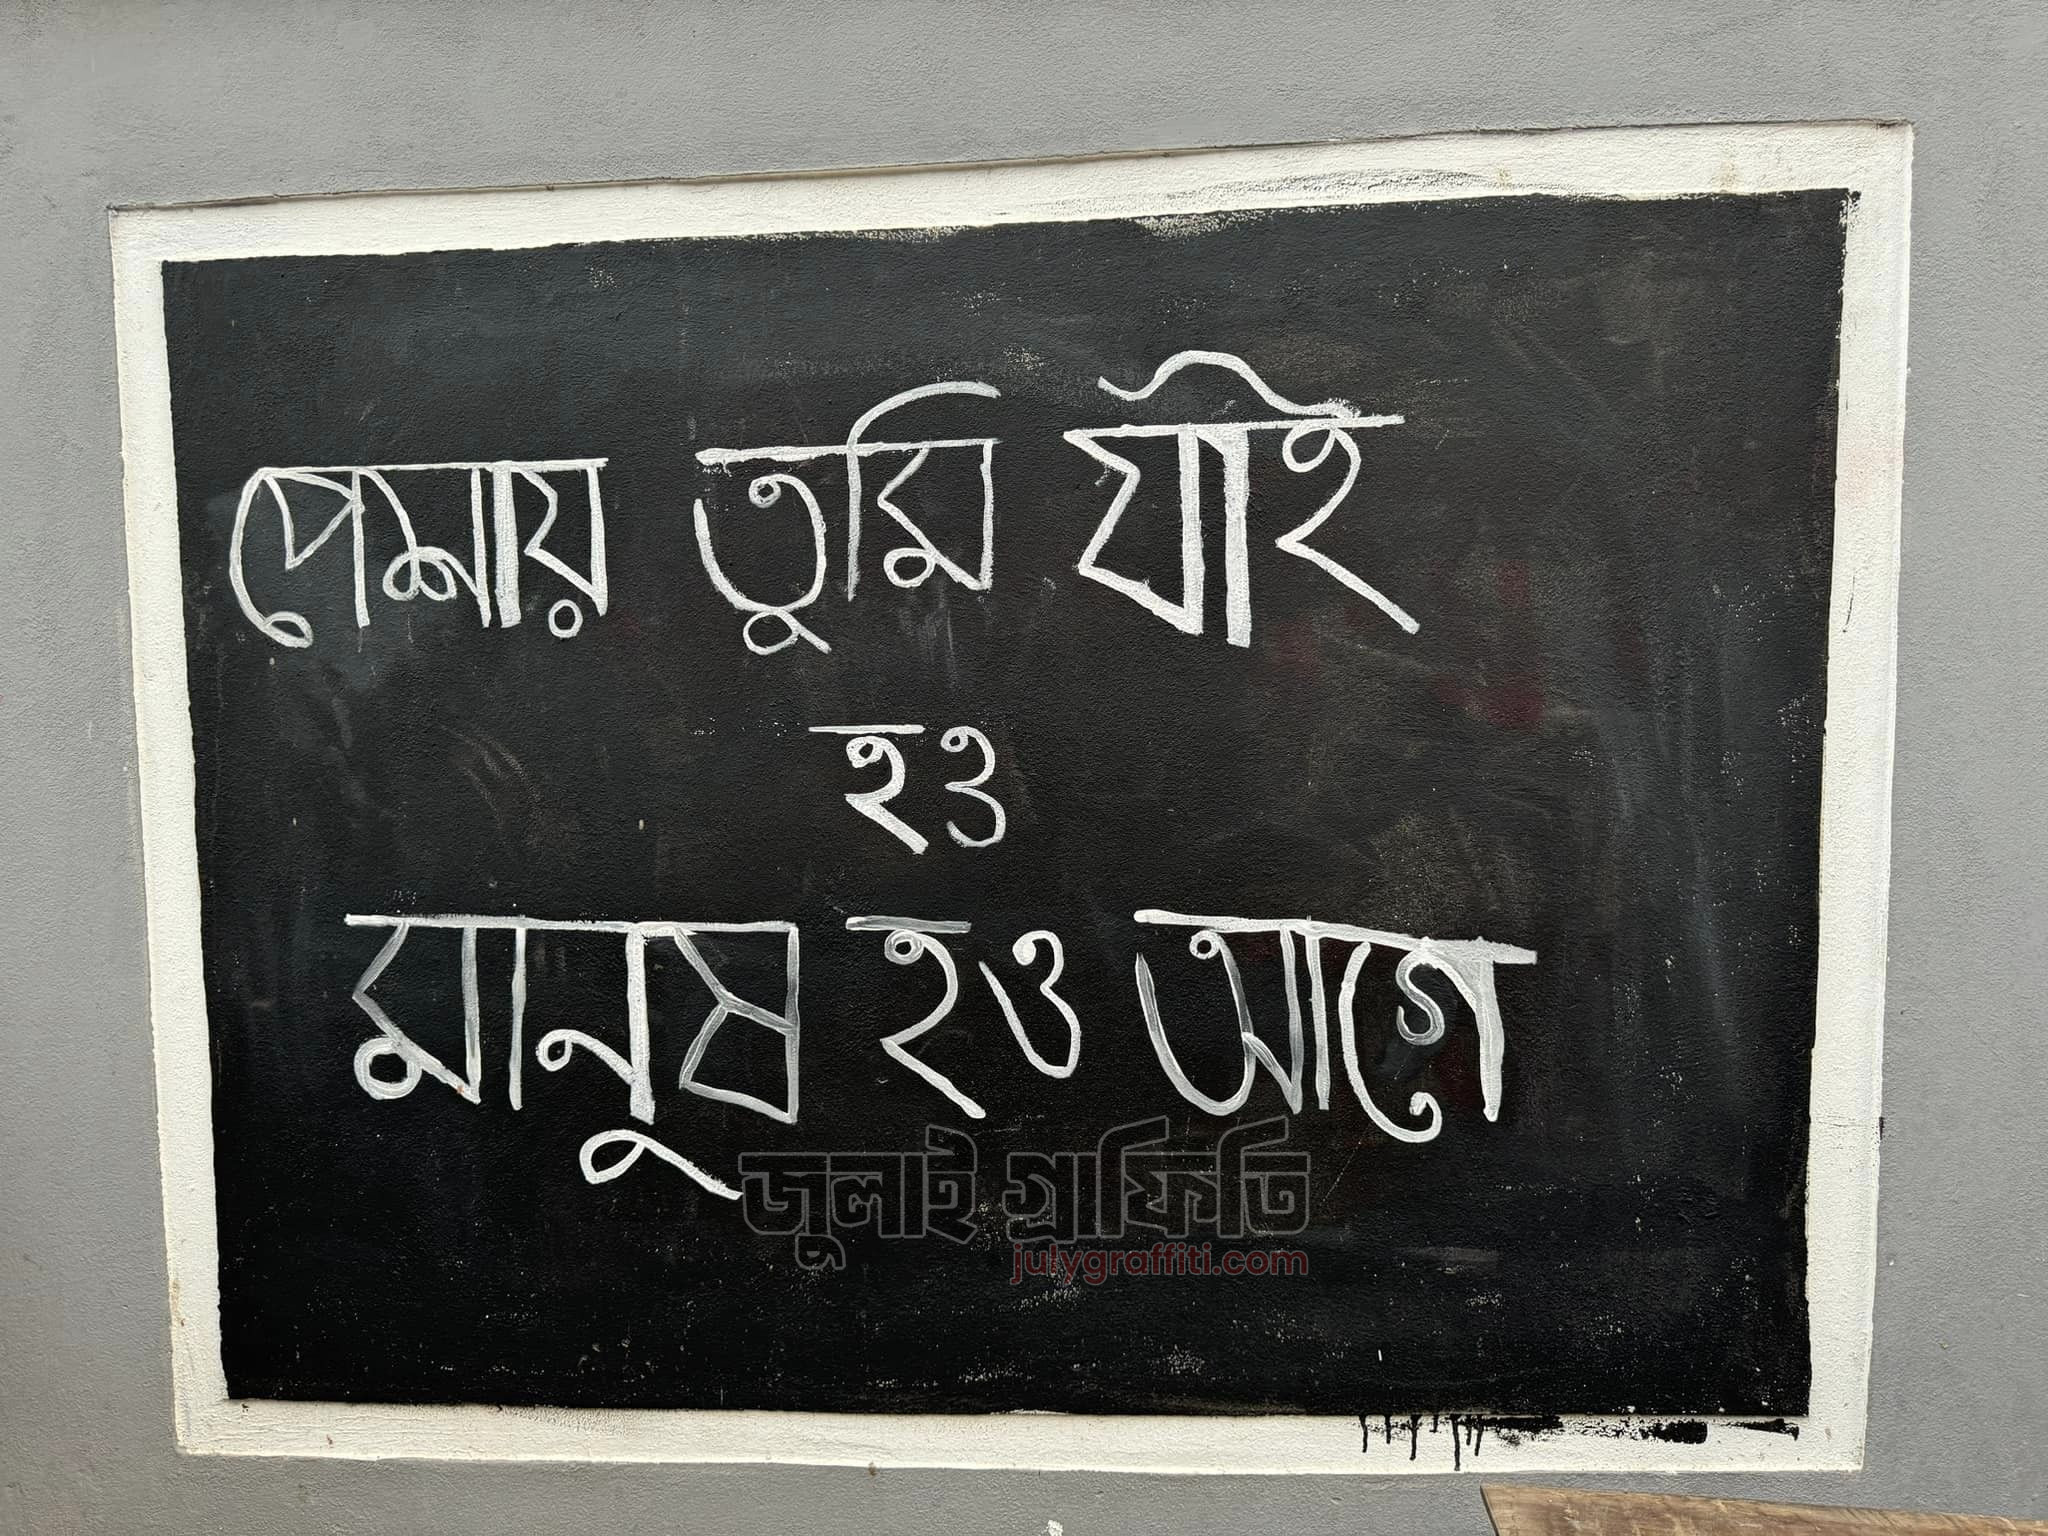 পেশায় তুমি যাই
হও
মানুষ হও আগে
জুলাই গ্রাফিতি
julygraffiti.com